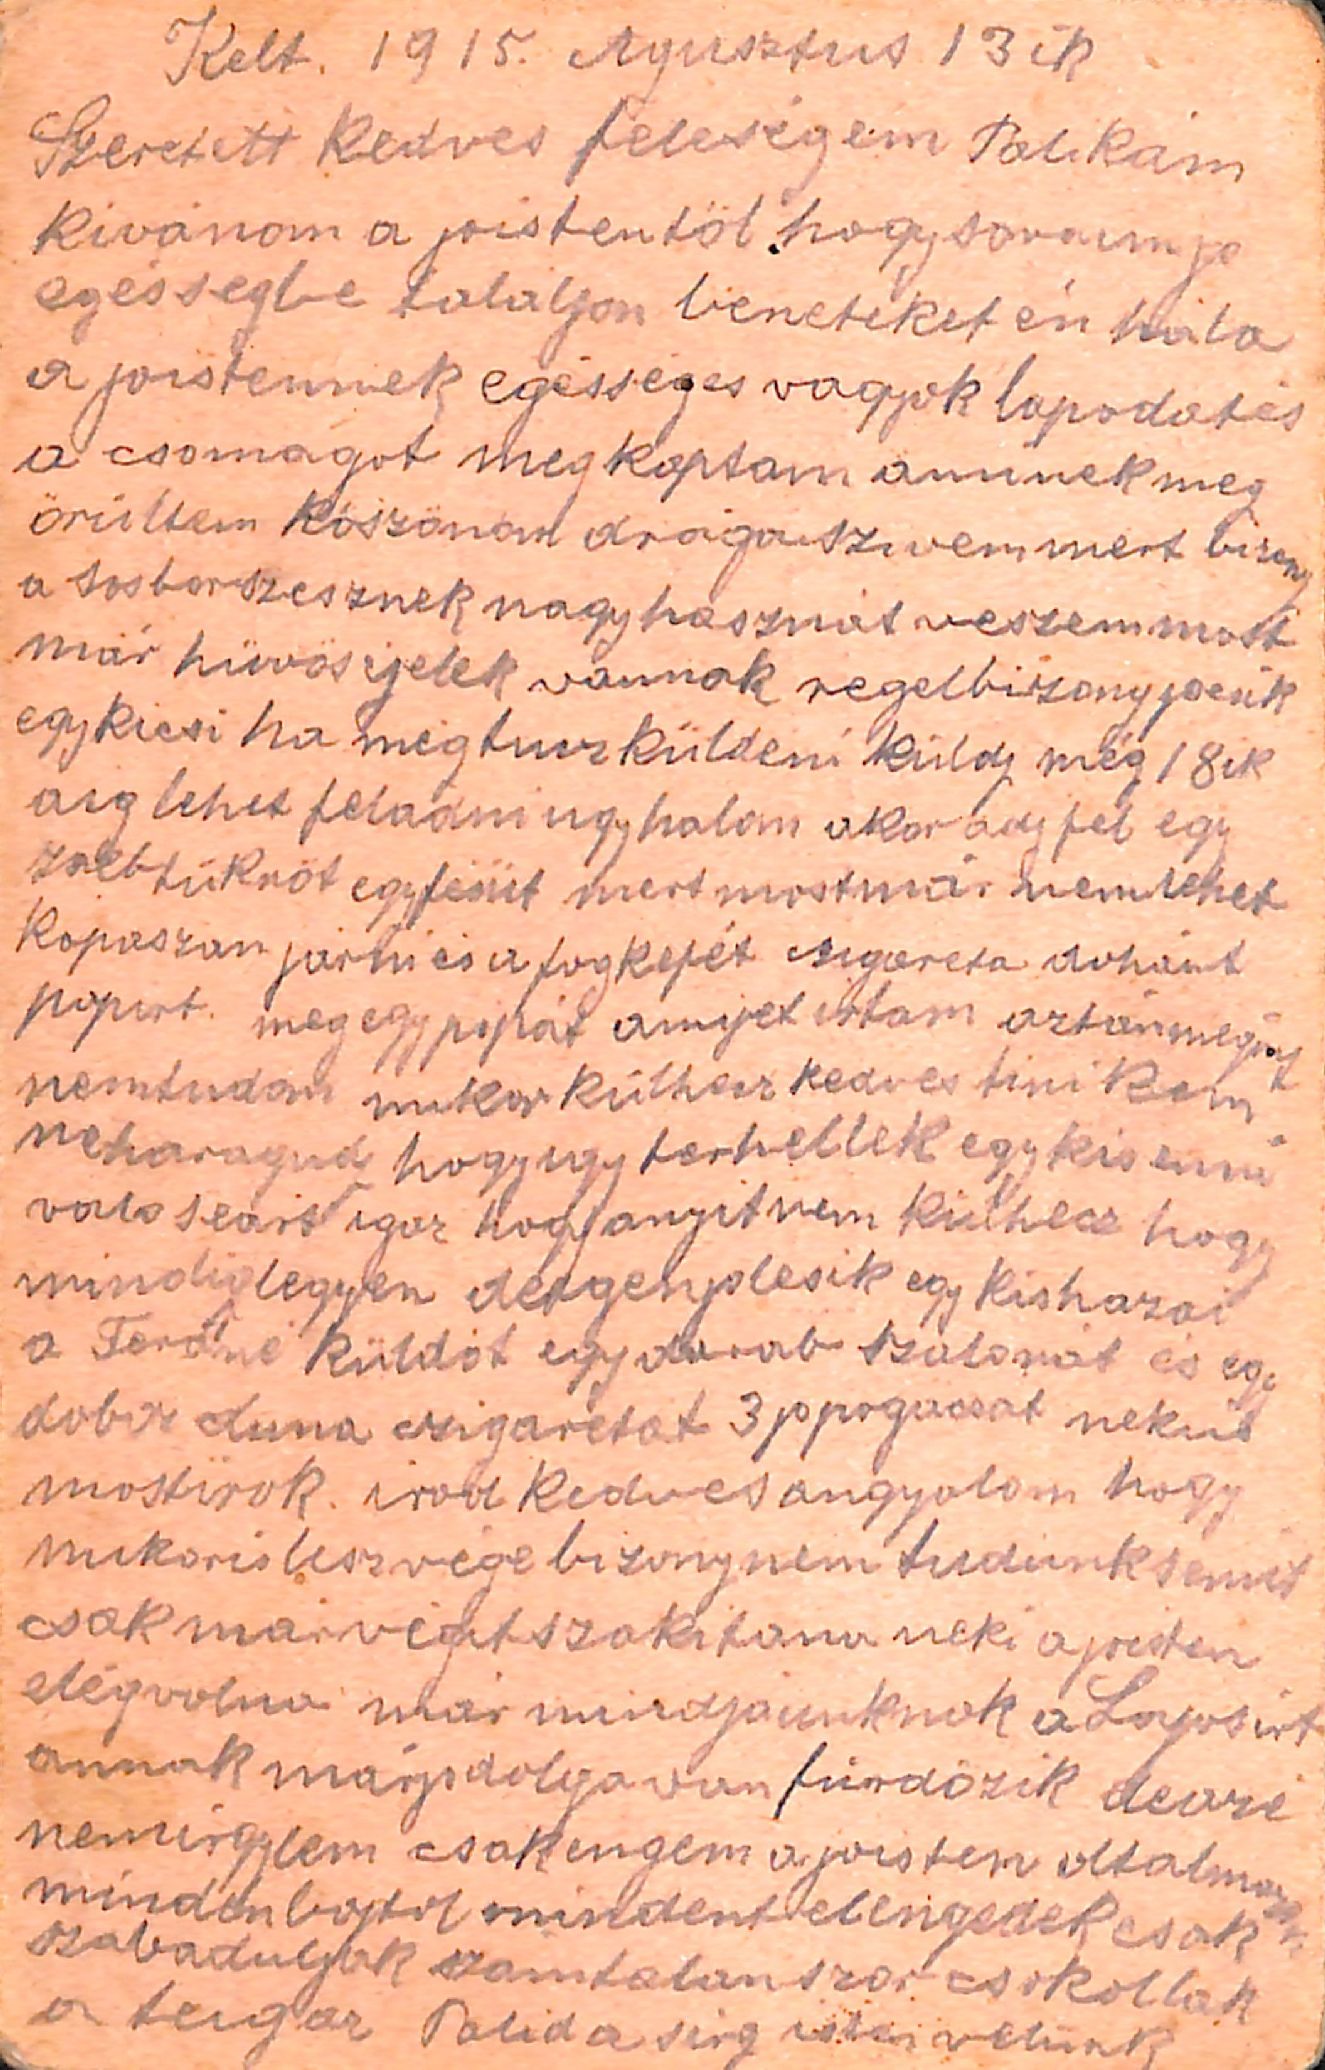 Kelt. 1915. Agusztus 13 ik
Szeretett Kedves feleségem Palikám
kivánom a joistentöl hogy soraim jo
egésségbe talaljon beneteket én hála
a joistennek egésséges vagyok lapodat és
a csomagot megkaptam annnek meg
örültem köszönöm draga szivem mert bizony
a sosborszesznek nagy hasznát veszem most
már hüvös ijelek vannak regel bizony joesik
egykicsi ha meg tucz küldeni küldj még 18ik
aig lehet feladni ugy halom akor adj fel egy
zsebtükröt egy fésüt mert mostmár nem lehet
kopaszan járni és a fogkefét czigareta dohánt
papirt. meg egy pipát amijet irtam aztán megint
nemtudom mikor külhecz kedves tinikem
neharagudj hogy ugy terhellek egy kis enni
valo seart igaz hogy anyit nem külhecz hogy
mindig legyen de igen jolesik egy kis hazai
a Ferdiné küldöt egy darab szalonát és egy
doboz duna czigaretat 3 p pogácsat nekik
mostirok. irod kedves angyalom hogy
mikoris lesz vége bizony nem tudunk semit
csak már végit szakitana neki a joisten
elég volna már mindjáunknak a Lajos irt
annak már jo dolga van fürdözik de azé
nem irigylem csak engem a joisten oltalmazon
minden bajtol mindent elengedek csak
szabaduljak számtalanszor csokollak
a te igaz Palid a sirig isten velünk